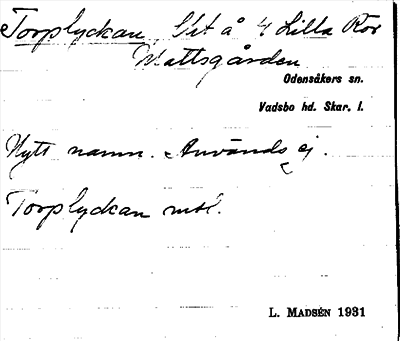 Torplyckan, Ut å 4 Lilla Kor
Mattsgården
Odensåkers sn.
Vadsbo hd. Skar. l.
Nytt namn. Används ej.
Torplyckan
L. MADSÉN 1931